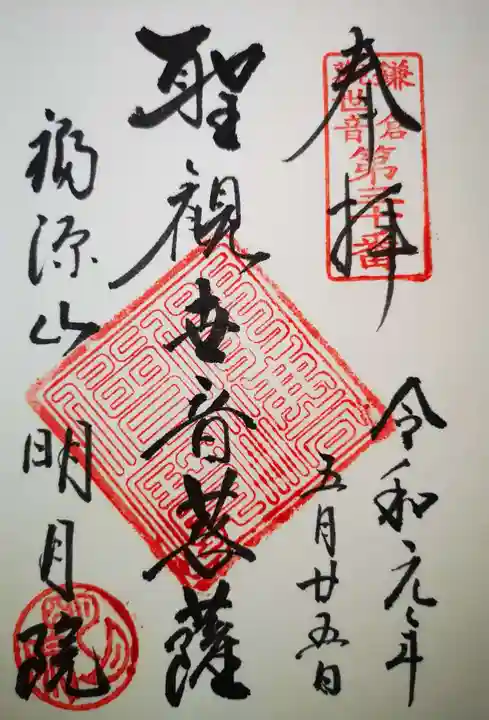 奉拝
鎌倉
観世音
第三十番
令和元年
五月廿五日
聖観世音菩薩
福源山明月院